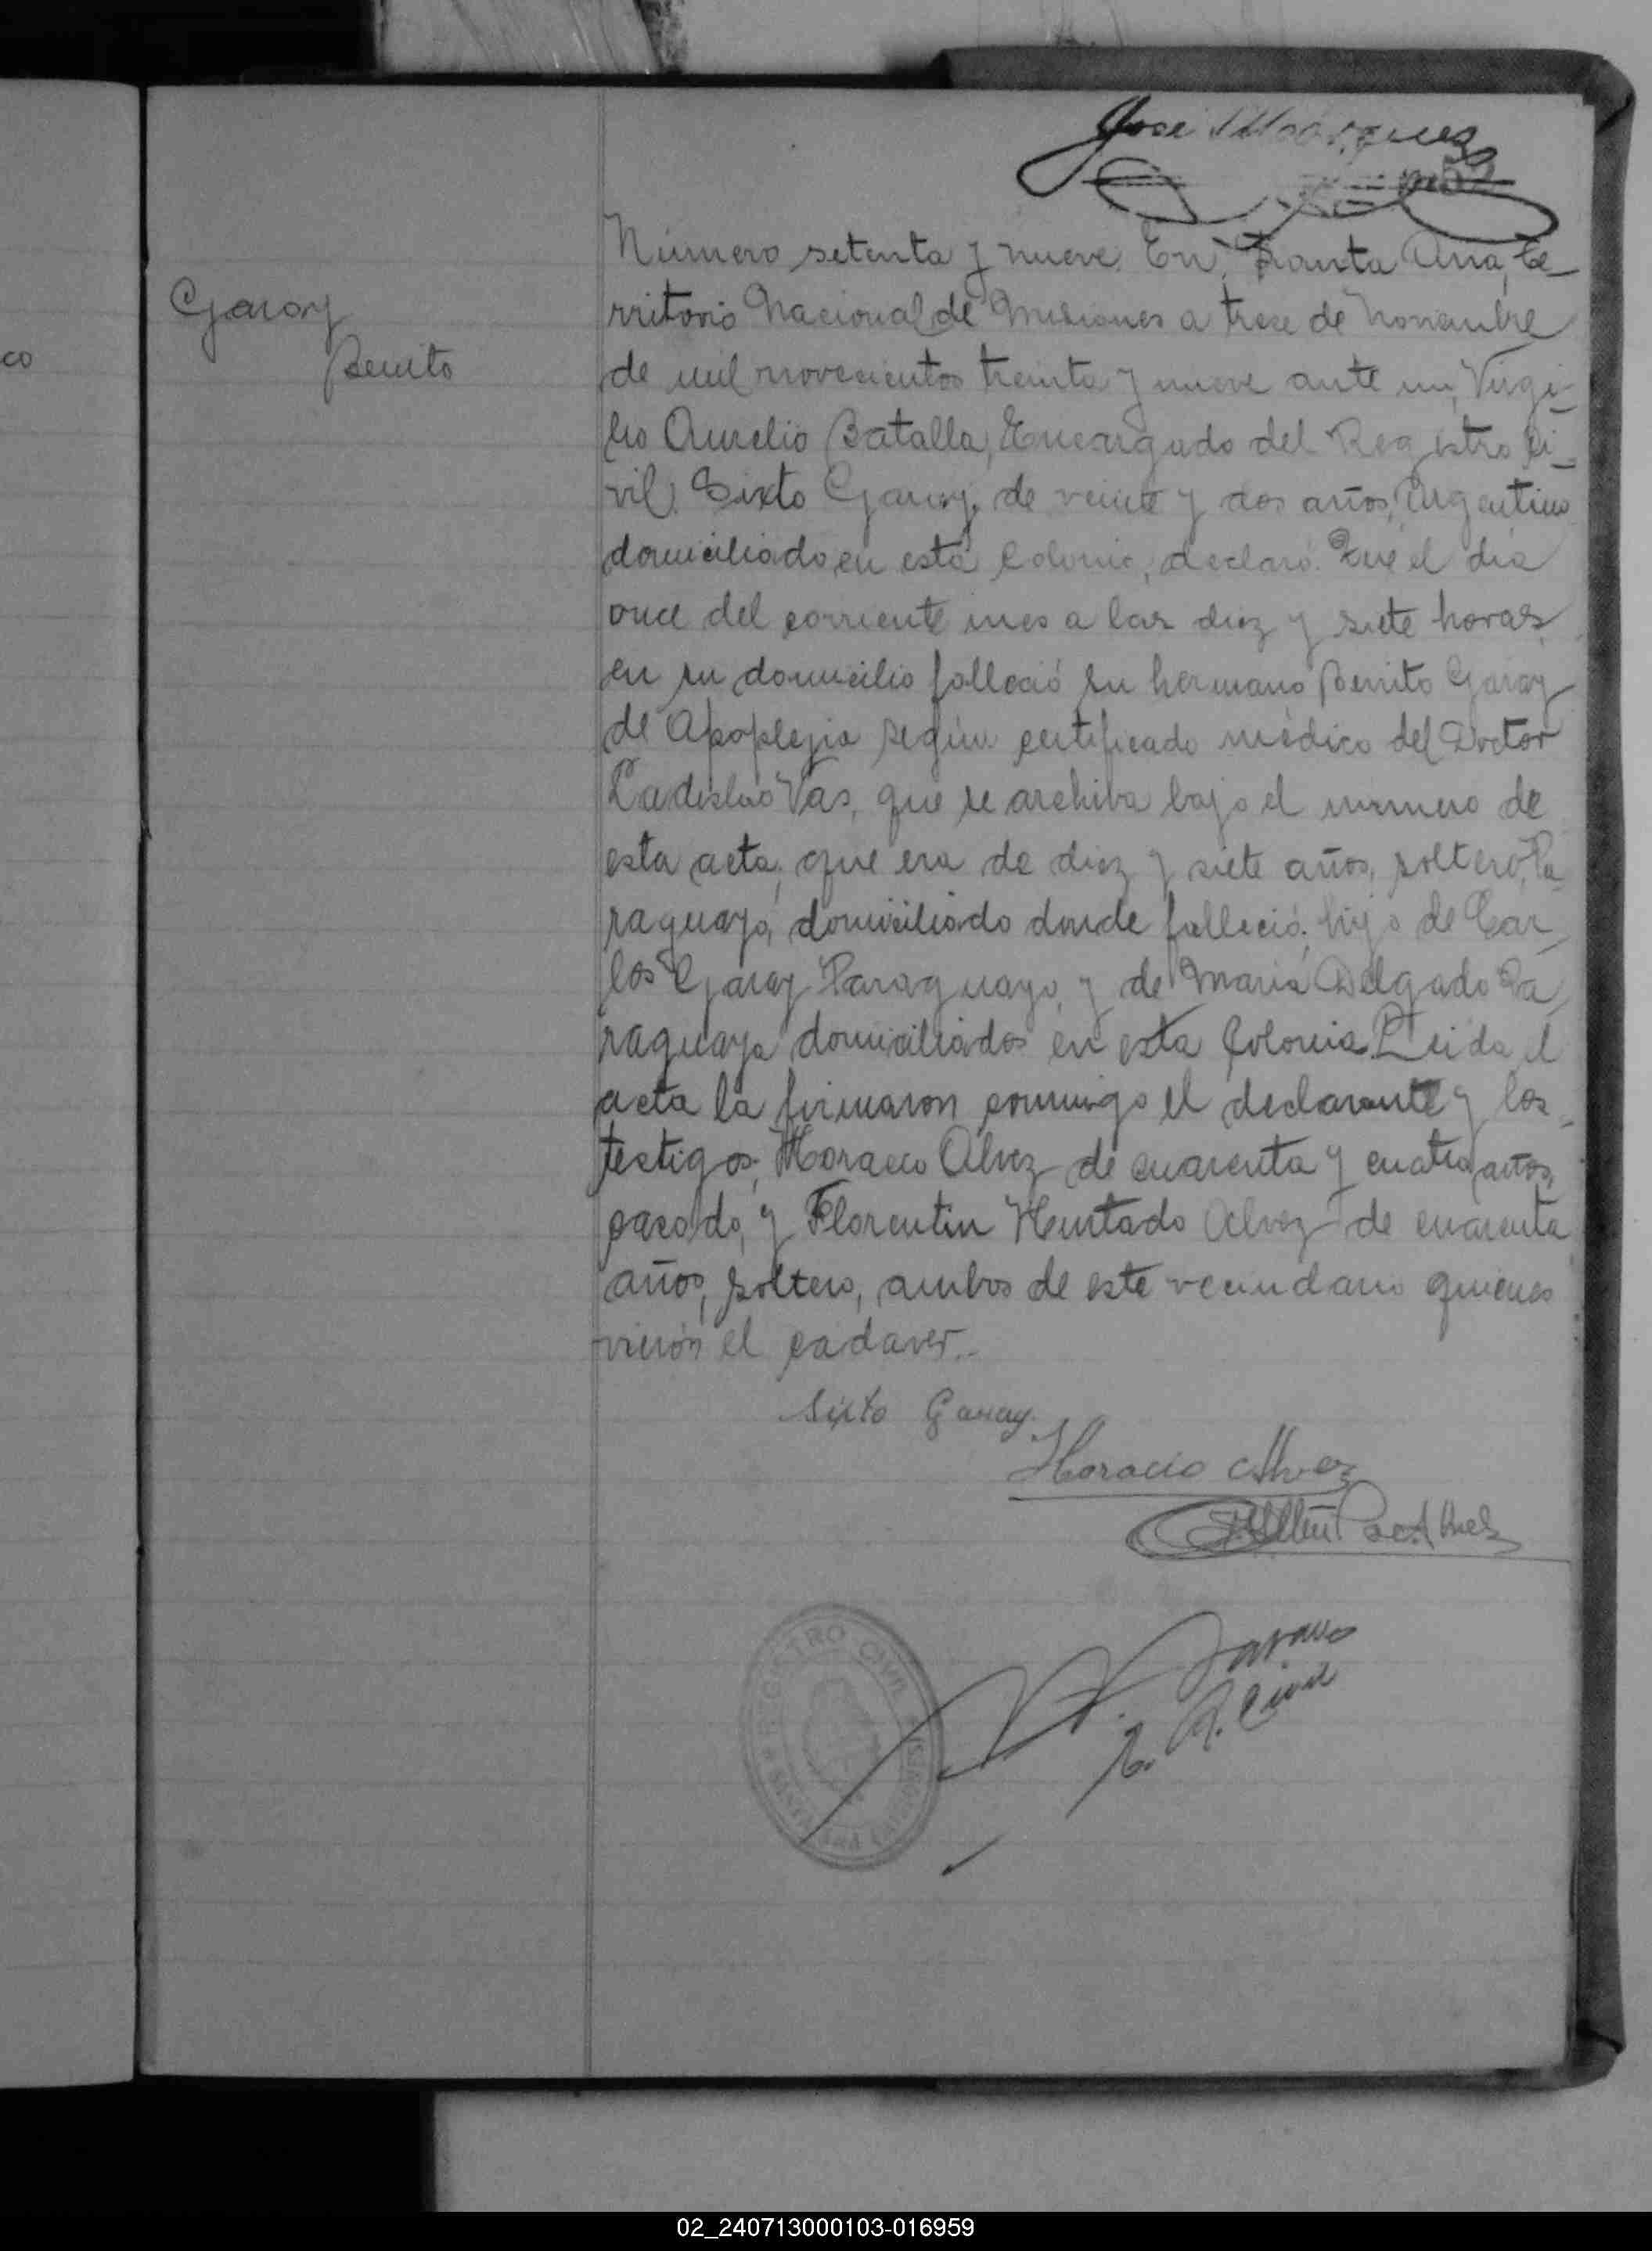 José Marquez
Número setenta y nueve. En Santa Ana, te-
Garay
rritorio Nacional de Misiones a trese de Noviembre
co
Benito
de mil novecientos treinta y nueve ante mi, Virgi-
lio Aurelio Batalla, Encargado del Registro Ci-
vil. Sixto Garay, de veinte y dos años, Argentino
domiciliado en esta Colonia, declaró: Que el día
once del corriente mes a las diez y siete horas
en su domicilio falleció su hermano Benito Garay
de Apoplejia según certificado médico del Doctor
Ladislao Vas, que se archiva bajo el numero de
esta acta; que era de diez y siete años, soltero, Pa-
raguayo, domiciliado donde falleció; hijo de Car-
los Garay Paraguayo, y de Maria Delgado Pa-
raguaya domiciliados en esta Colonia. Leida el
acta la firmaron conmigo el declarante y los
testigos; Horacio Alvez de cuarenta y cuatro años,
casado, y Florentin Hurtado Alvez de cuarenta
años, soltero, ambos de este vecindario quienes
vieron el cadaver.-
Sixto Garay.
Horacio Alvez
REGISTRO CIVIL
SANTA ANA (MISIONES)
E. R. Civil
02_240713000103-016959